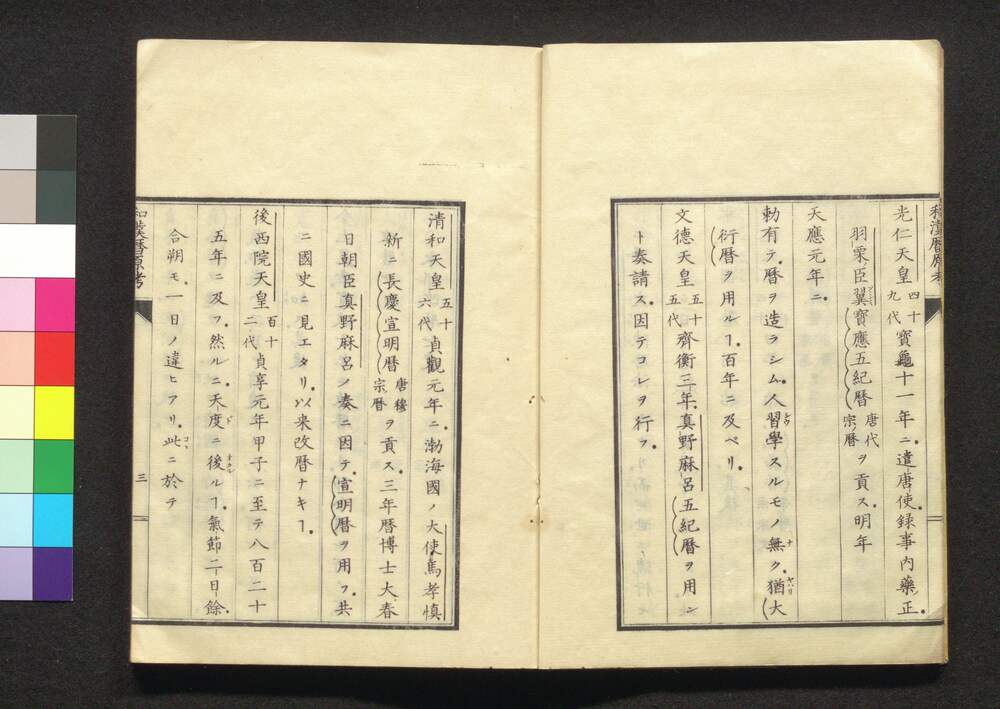 光仁天皇四十九代寳龜十一年ニ遣唐使録事内藥正
羽栗ノ臣翼寳應五紀曆唐代宗ノ曆ヲ貢ス明年
天應元年ニ
勅有テ曆ヲ造ラシム人習學スルモノ無ク猶大
衍曆ヲ用ルヿ百年ニ及ベリ
文德天皇五十五代齊衡三年真野麻呂五紀曆ヲ用ン
ト奏請ス因テコレヲ行フ
清和天皇五十六代貞觀元年ニ渤海國ノ大使馬孝慎
新ニ長慶宣明曆唐穆宗曆ヲ貢ス三年曆博士大春
日朝臣真野麻呂ノ奏ニ因テ宣明曆ヲ用フ共
ニ國史ニ見エタリ以来改曆ナキヿ
後西院天皇百十二代貞享元年甲子ニ至テ八百二十
五年ニ及フ然ルニ天度ニ後ルヿ氣節二日餘
合朔モ一日ノ違ヒアリ此ニ於テ
和漢曆原考
三